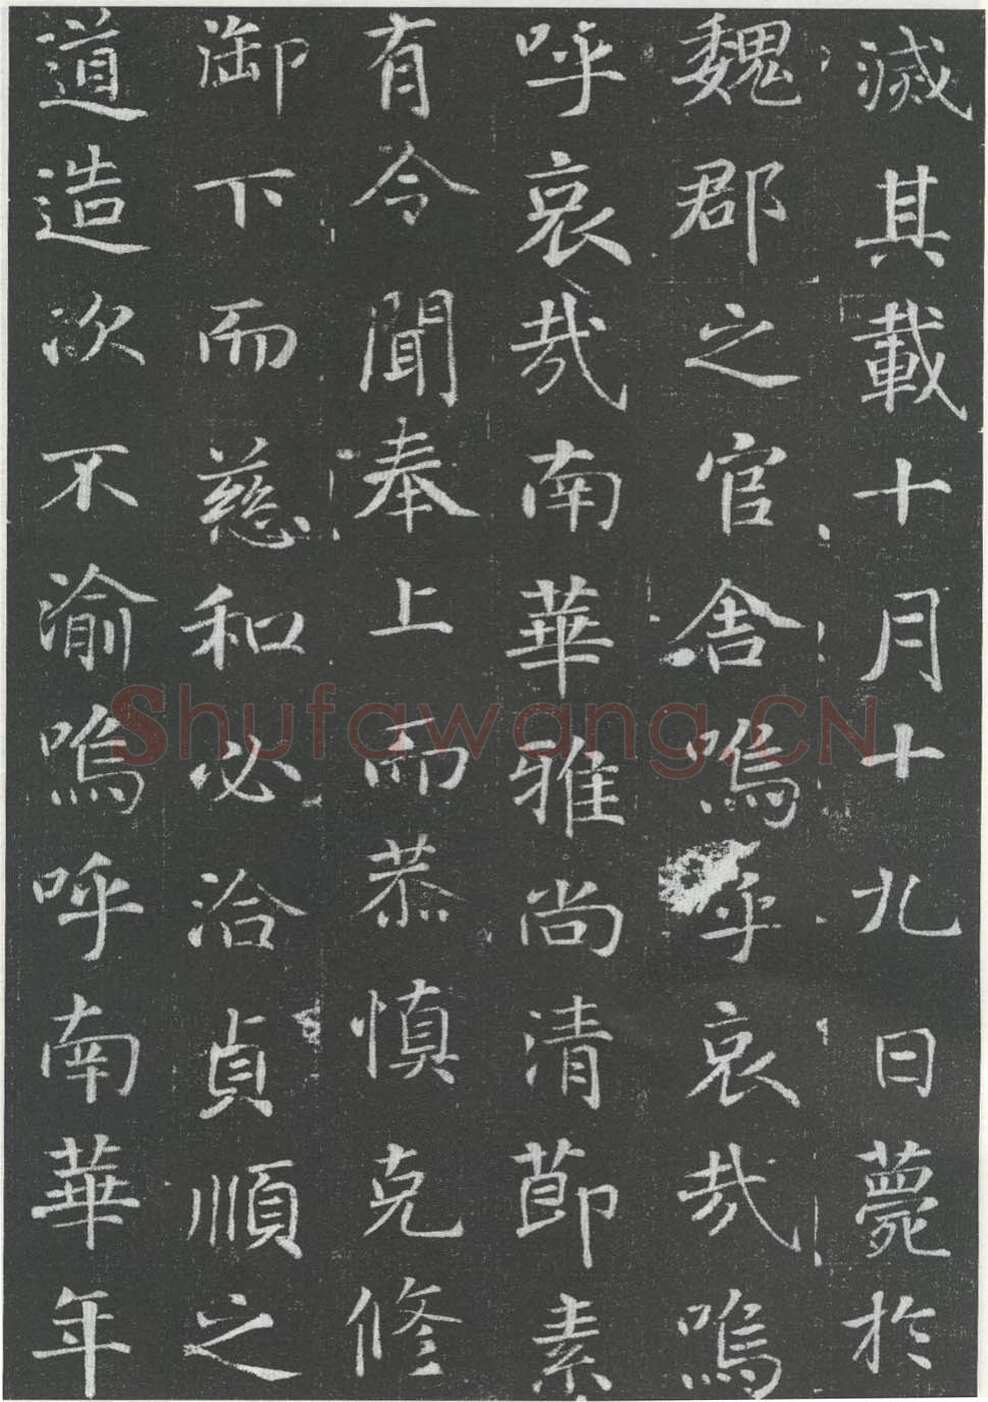 滅其載十月十九日薨於
魏郡之官舍嗚呼哀哉嗚
呼哀哉南華雅尚清節素
有令聞奉上而恭慎克修
御下而慈和必洽貞順之
道造次不渝嗚呼南華年
Shufawang.CN